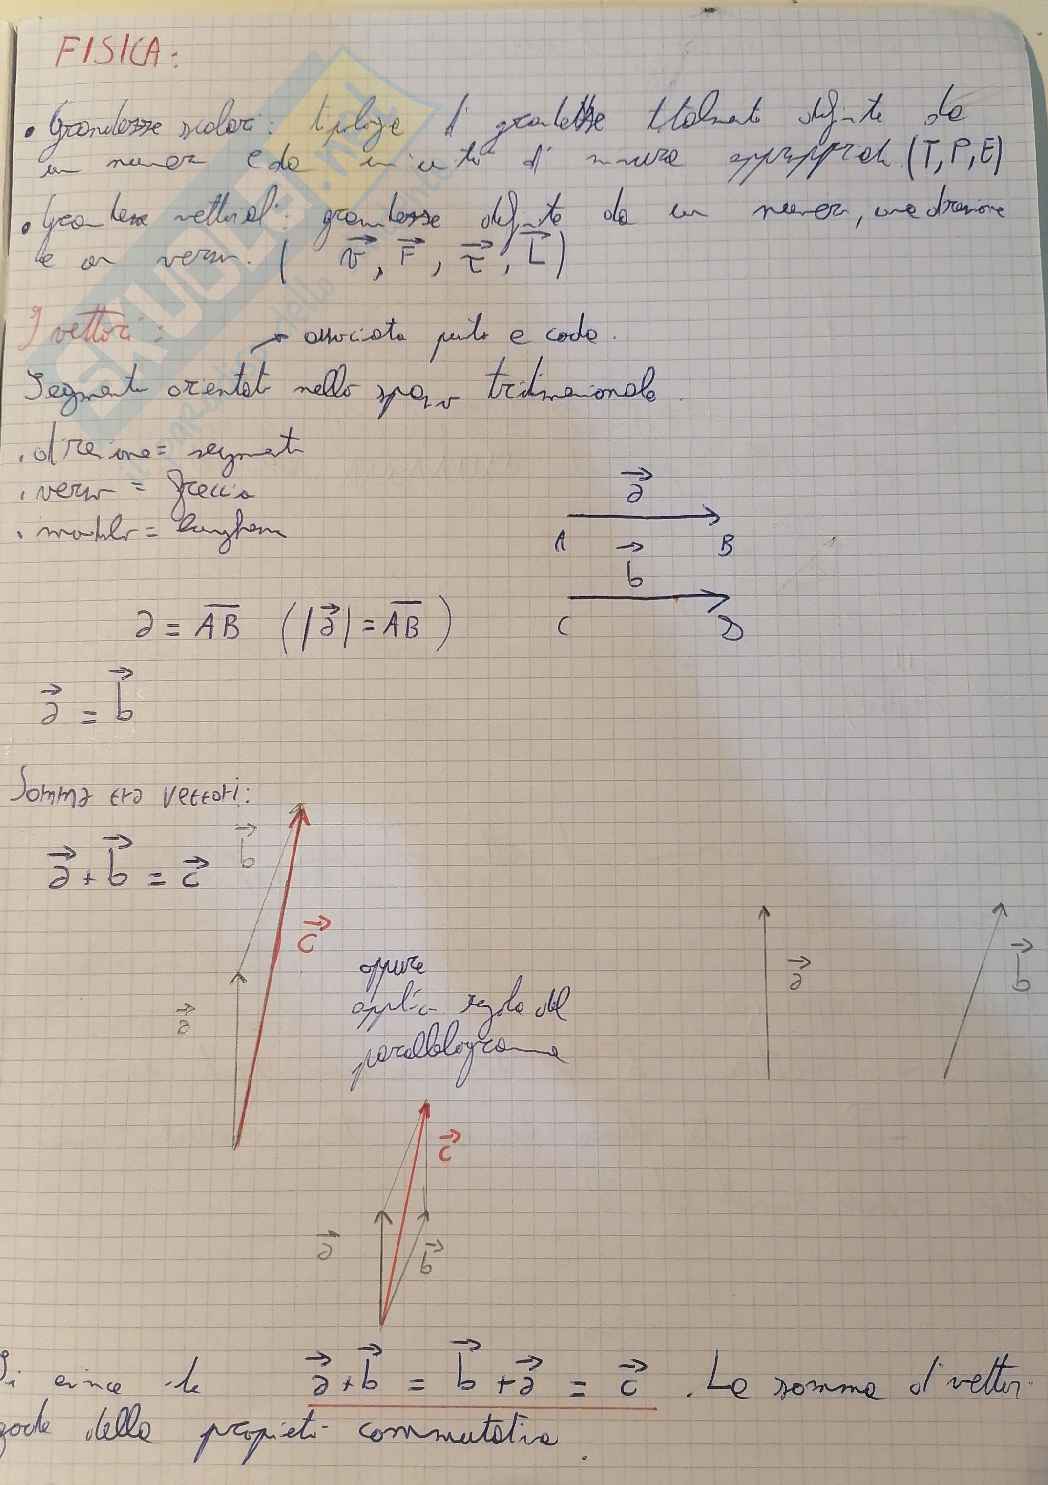 FISICA:
• Grandezze scalari: tipologie di grandezze totalmente definite da
un numero e da un'unità di misura appropriata (T, P, E)
• Grandezze vettoriali: grandezze definite da un numero, una direzione
e un verso. ( v⃗, F⃗, τ⃗, L⃗ )
I vettori:
→ associata punta e coda.
Segmenti orientati nello spazio tridimensionale.
. direzione = segmento
. verso = freccia
. modulo = lunghezza
a⃗
A B
b⃗
C D
a = A̅B̅ ( |a⃗| = A̅B̅ )
a⃗ = b⃗
Somma tra vettori:
a⃗ + b⃗ = c⃗
b⃗
c⃗
a⃗
oppure
applico regola del
parallelogramma
a⃗
b⃗
c⃗
a⃗
b⃗
Si evince che a⃗ + b⃗ = b⃗ + a⃗ = c⃗ . La somma di vettori
gode della proprietà commutativa.
SKUOLA.net